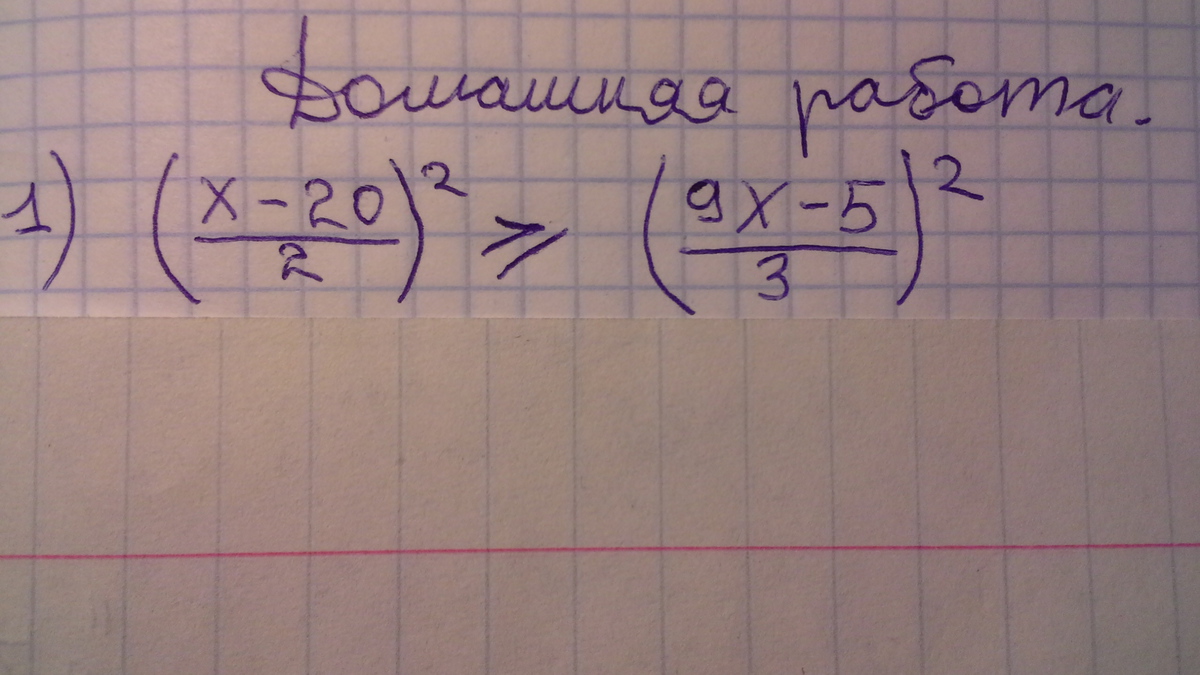 Домашняя работа.
1) (x-20/2)² ⩾ (9x-5/3)²